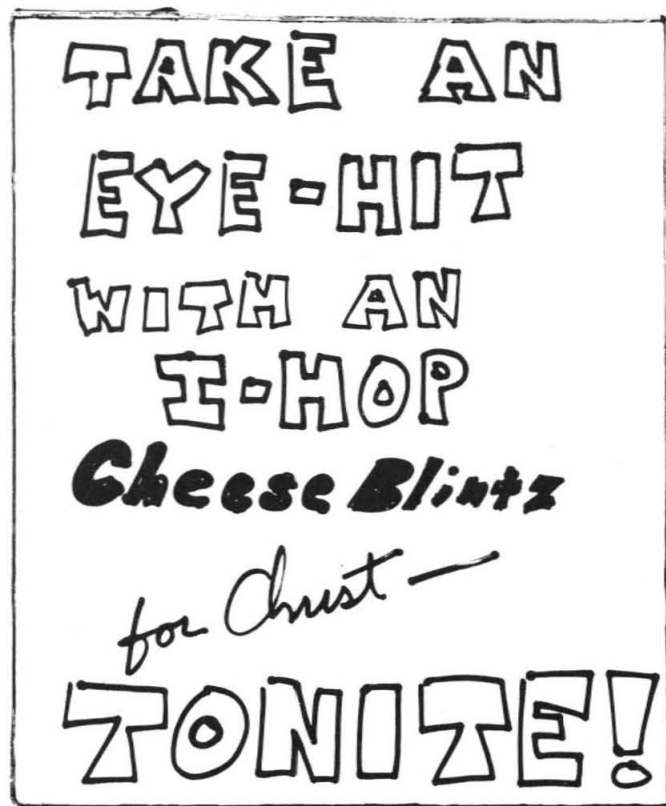 TAKE AN
EYE-HIT
WITH AN
I-HOP
Cheese Blintz
for Christ —
TONITE!